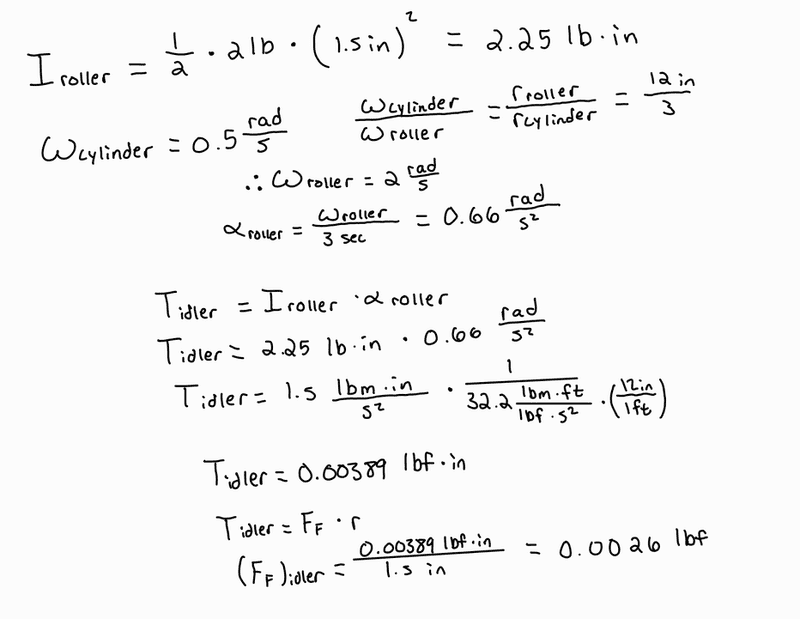 I roller = 1/2 · 2 lb · (1.5 in)² = 2.25 lb·in
ω cylinder = 0.5 rad/s    ω cylinder / ω roller = r roller / r cylinder = 12 in / 3
∴ ω roller = 2 rad/s
α roller = ω roller / 3 sec = 0.66 rad/s²
T idler = I roller · α roller
T idler = 2.25 lb·in · 0.66 rad/s²
T idler = 1.5 lbm·in/s² · 1 / (32.2 lbm·ft/lbf·s²) · (12in/1ft)
T idler = 0.00389 lbf·in
T idler = F_F · r
(F_F) idler = 0.00389 lbf·in / 1.5 in = 0.0026 lbf